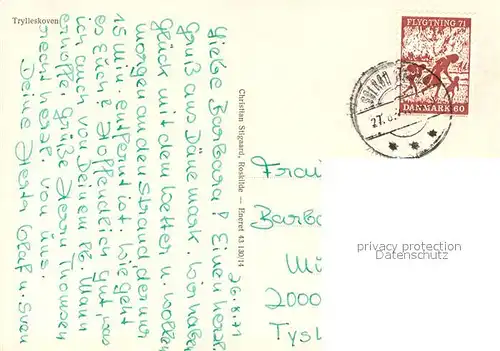 Trylleskoven
26.8.71
Liebe Barbara! Einen herzl.
Gruß aus Dänemark. Wir haben
Glück mit dem Wetter u. wollen
morgen an den Strand, der nur
15 Min. entfernt ist. Wie geht
es Euch? Hoffentlich gut, was
ich auch von Deinem lb. Mann
erhoffe. Grüße Herrn Thomsen
recht herzl. von uns.
Deine Herta Olaf u. Sven
Christian Stigaard, Roskilde — Eneret 43 130/14
FLYGTNING 71
DANMARK 60
27.8.
Frau
Barba
Mü
2000
Tys
privacy protection
Datenschutz